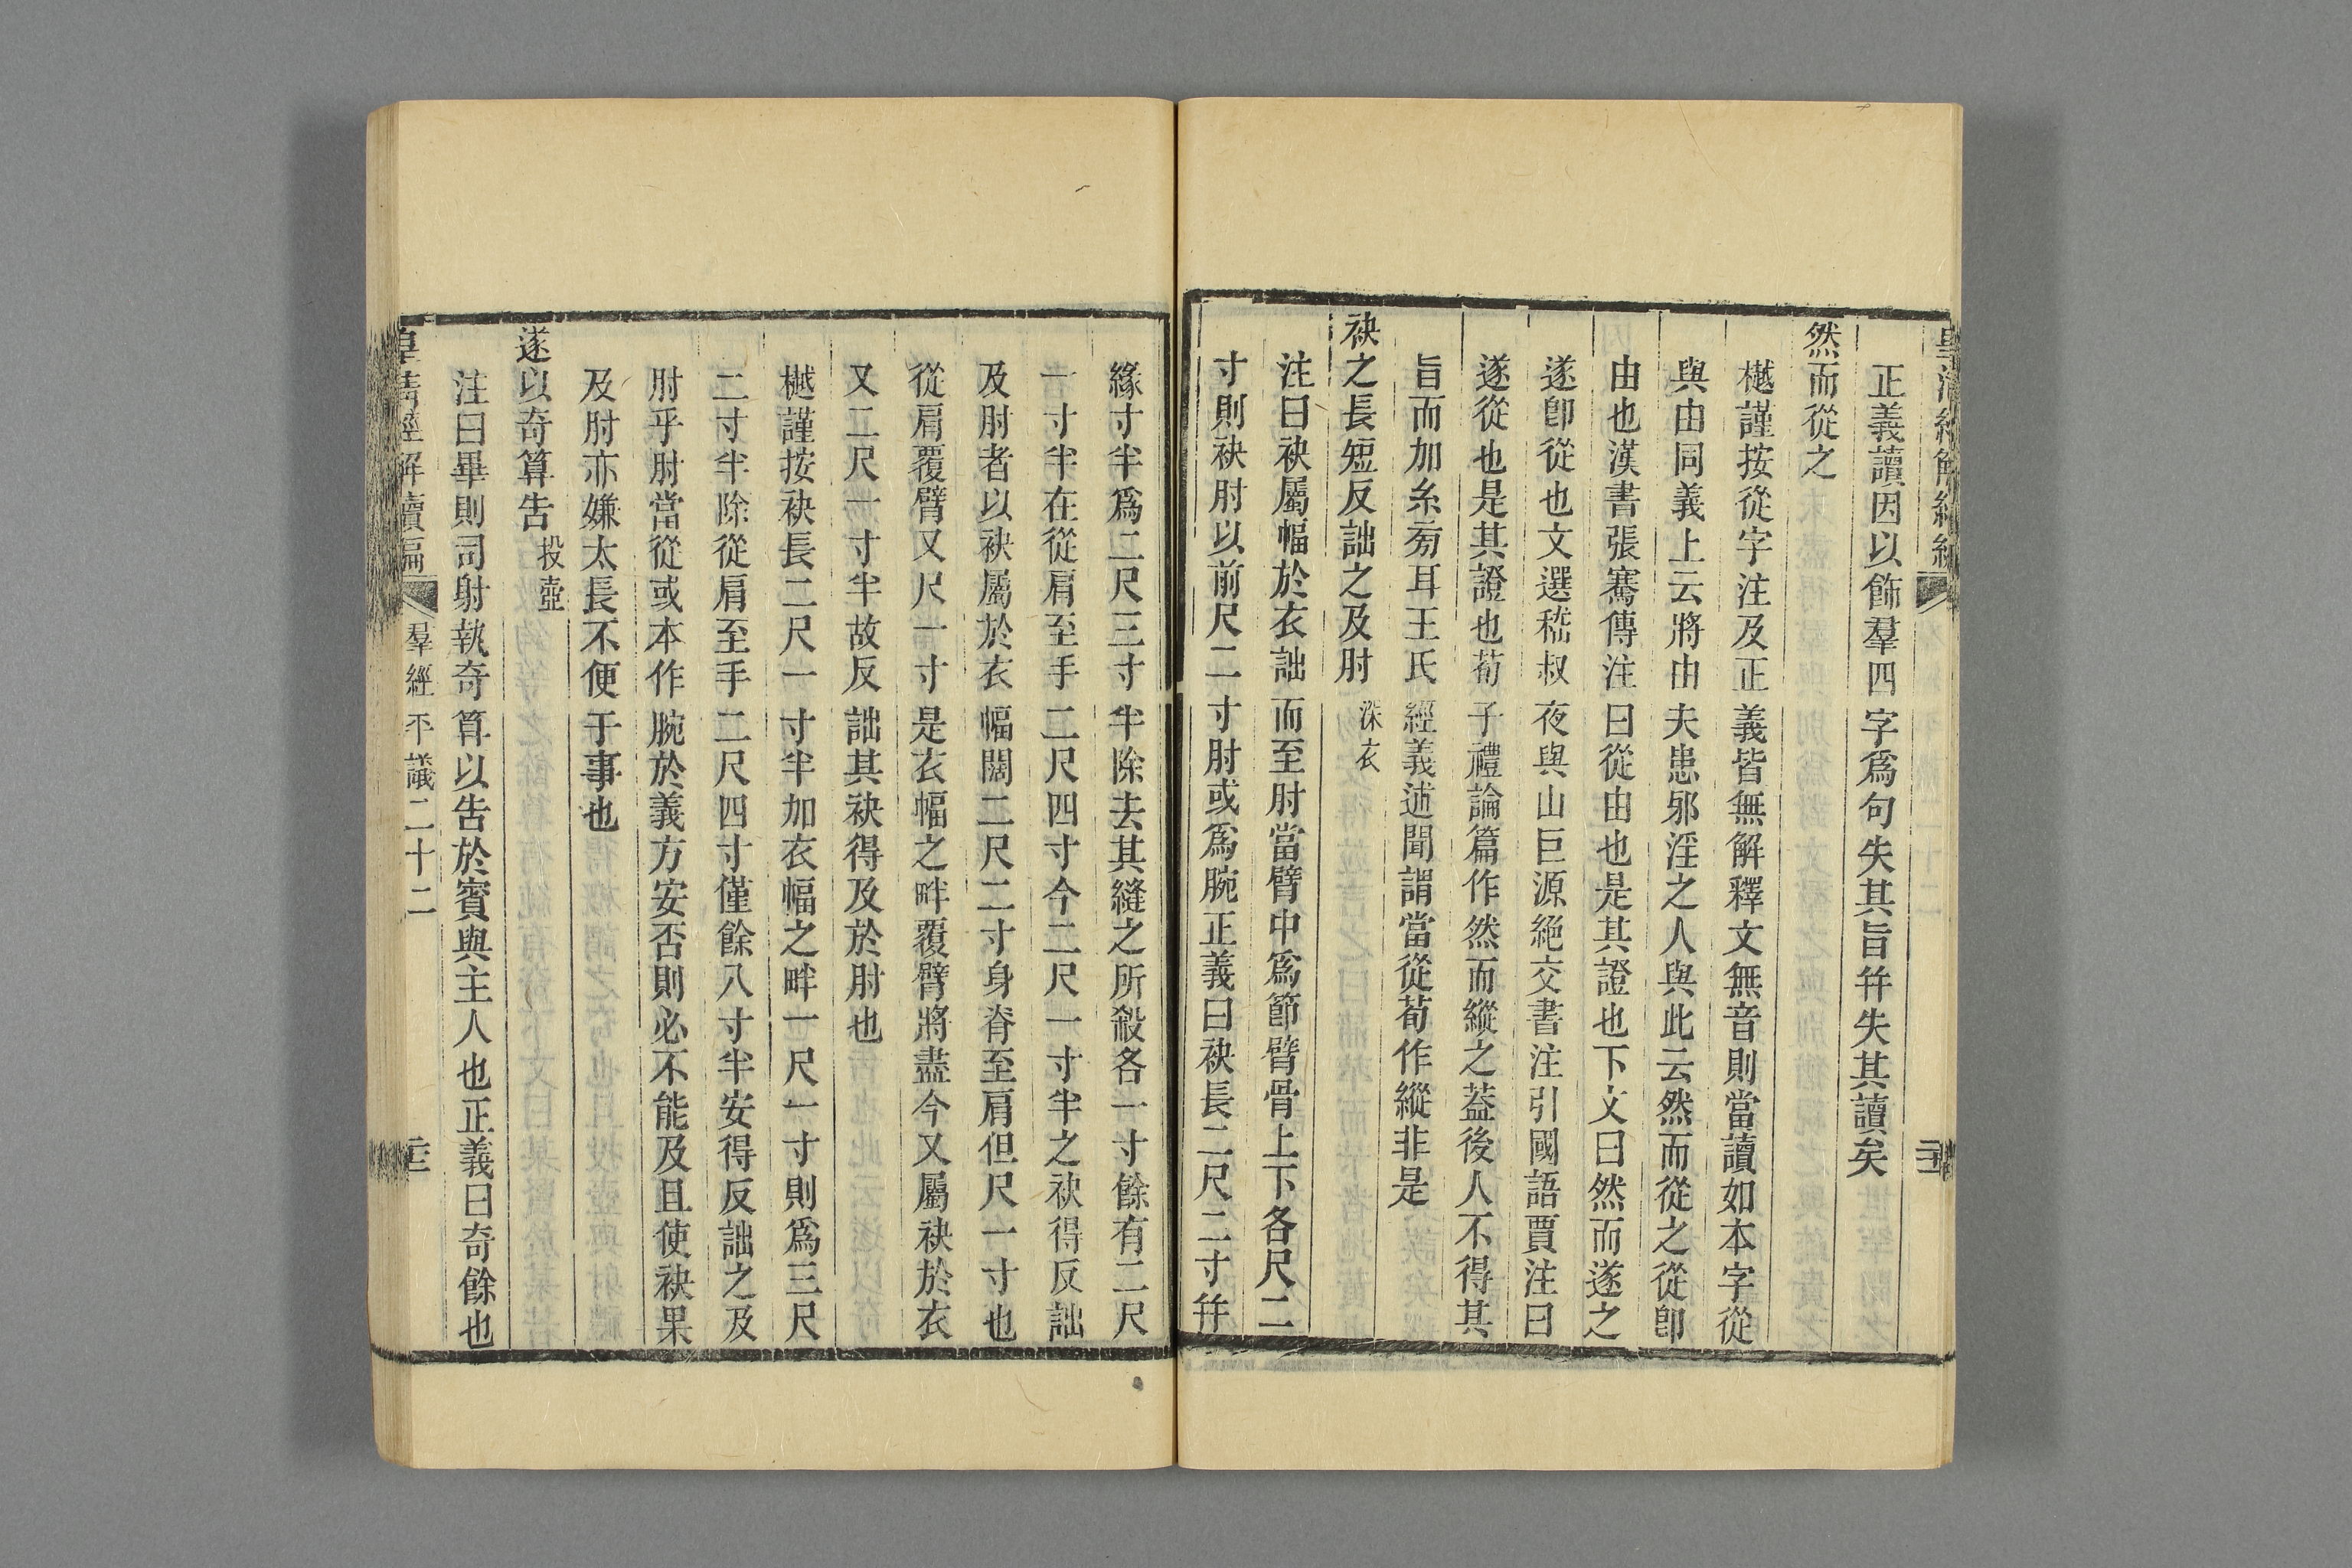 正義讀因以飾羣四字爲句失其旨幷失其讀矣
然而從之
樾謹按從字注及正義皆無解釋文無音則當讀如本字從
與由同義上云將由夫患邪淫之人與此云然而從之從卽
由也漢書張騫傳注曰從由也是其證也下文曰然而遂之
遂卽從也文選嵇叔夜與山巨源絕交書注引國語賈注曰
遂從也是其證也荀子禮論篇作然而縱之葢後人不得其
旨而加糸旁耳王氏經義述聞謂當從荀作縱非是
袂之長短反詘之及肘 深衣
注曰袂屬幅於衣詘而至肘當臂中爲節臂骨上下各尺二
寸則袂肘以前尺二寸肘或爲腕正義曰袂長二尺二寸幷
緣寸半爲二尺三寸半除去其縫之所殺各一寸餘有二尺
一寸半在從肩至手二尺四寸今二尺一寸半之袂得反詘
及肘者以袂屬於衣幅闊二尺二寸身脊至肩但尺一寸也
從肩覆臂又尺一寸是衣幅之畔覆臂將盡今又屬袂於衣
又二尺一寸半故反詘其袂得及於肘也
樾謹按袂長二尺一寸半加衣幅之畔一尺一寸則爲三尺
二寸半除從肩至手二尺四寸僅餘八寸半安得反詘之及
肘乎肘當從或本作腕於義方安否則必不能及且使袂果
及肘亦嫌太長不便于事也
遂以奇算告 投壺
注曰畢則司射執奇算以告於賓與主人也正義曰奇餘也
皇淸經解續編 羣經平議二十二